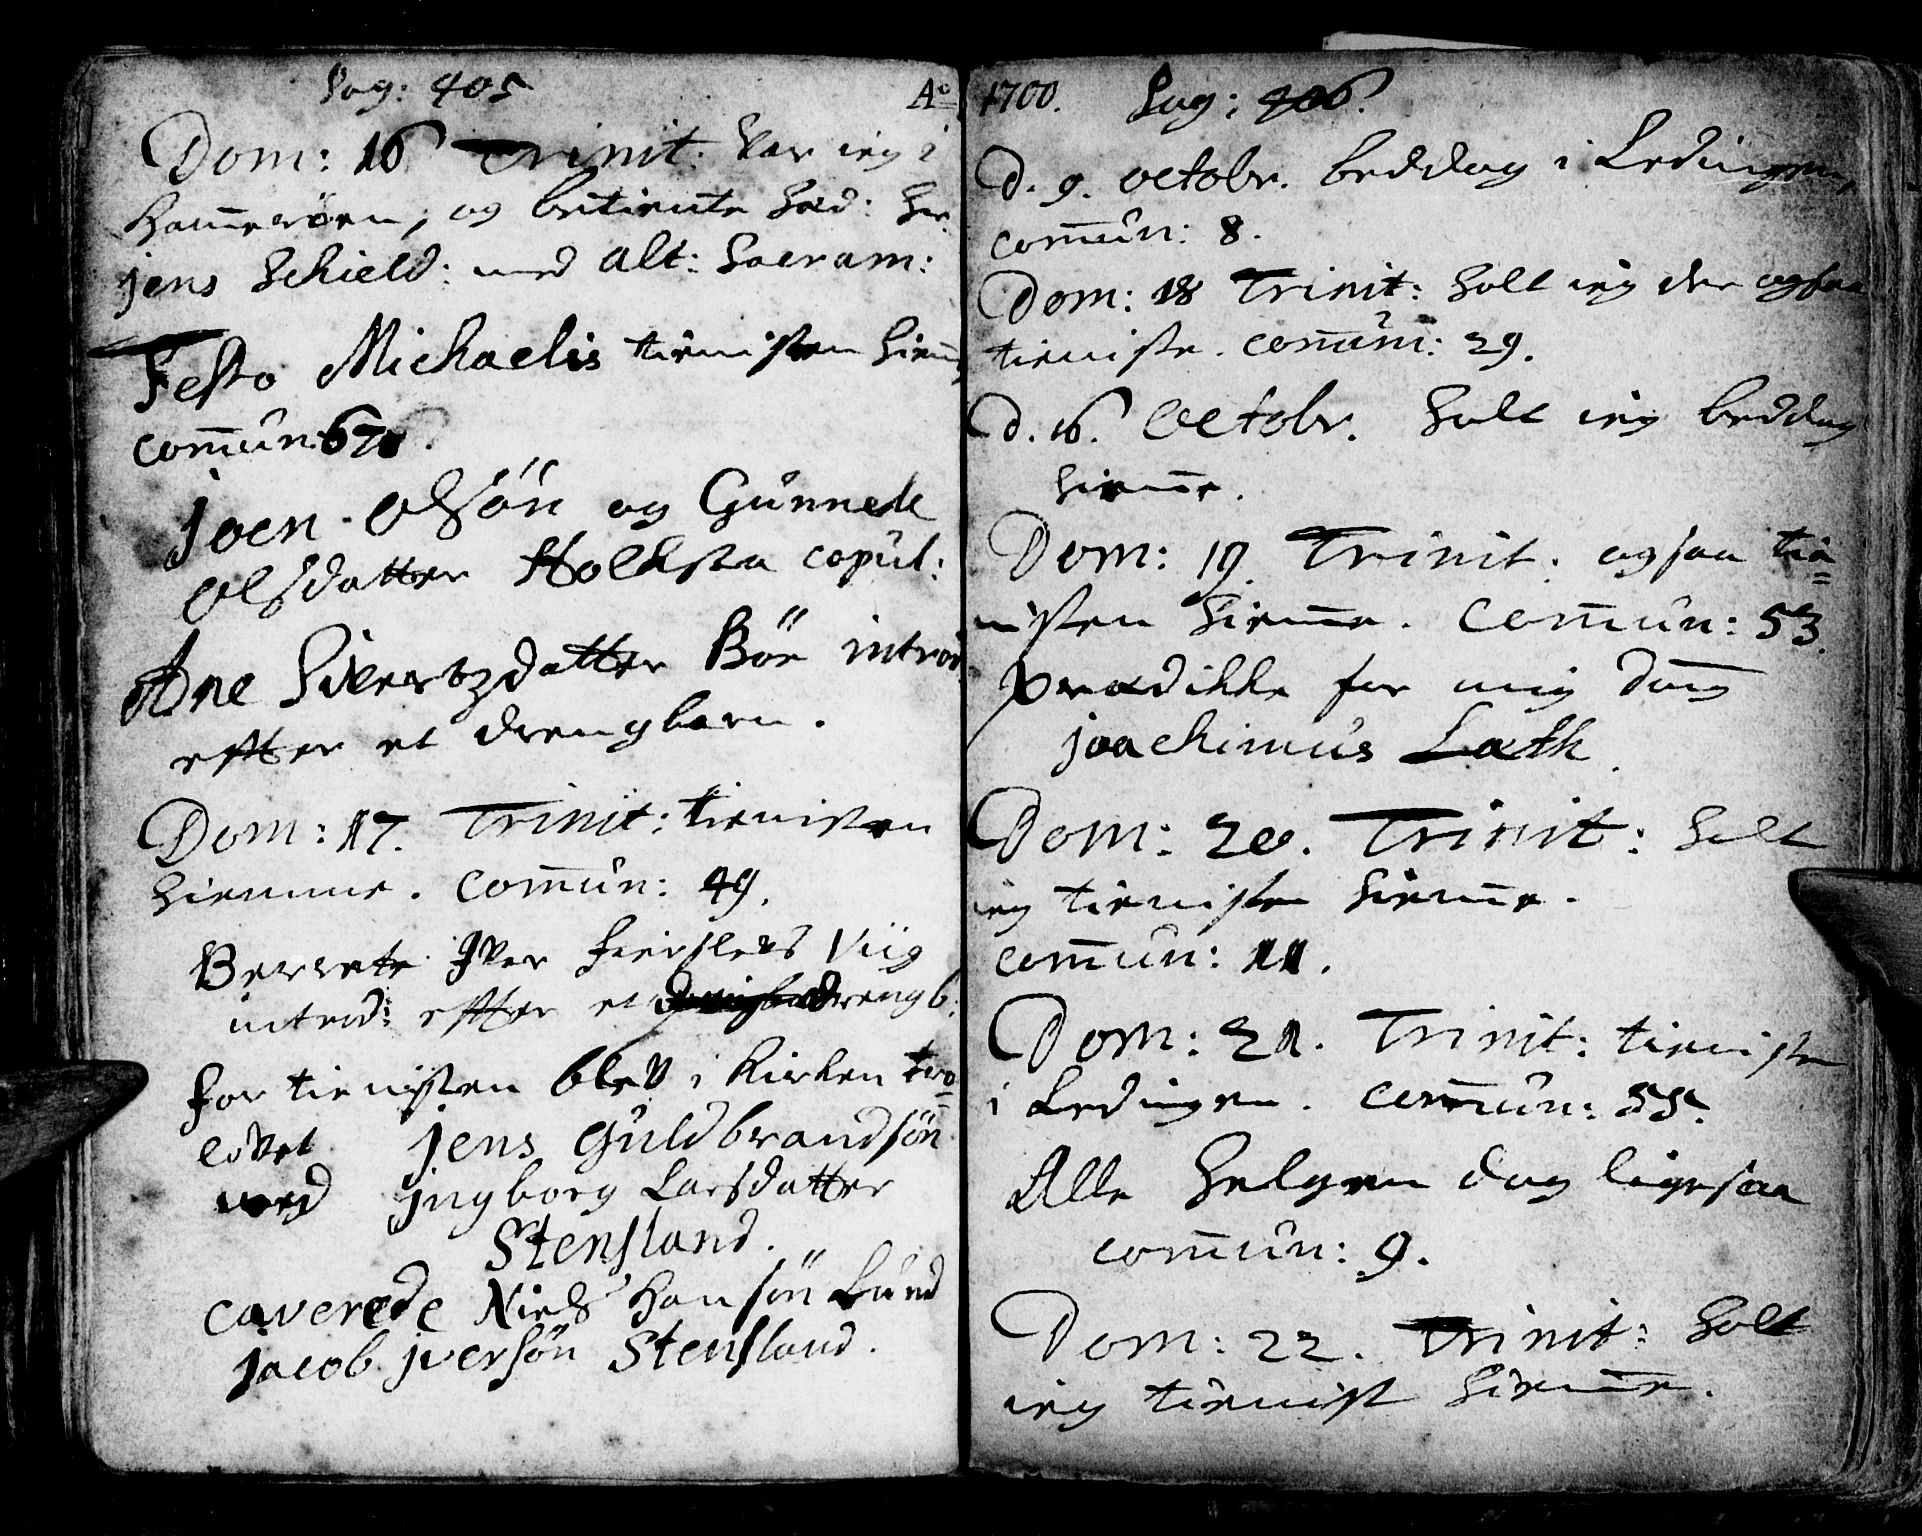 Pag: 405
Dom: 16 Trinit: Var ieg i
Ham̅erøen, og betiente Sæd: Hr.
jens Schield: med Alt: Sacram:
Festo Michaelis tienisten hiem̅e
com̅un: 67.
joen Olsøn og Gunnele
Olsdatter Holdsta copul:
Ane Sivertzdatter Böe introd
effter et drengbarn.
Dom: 17. Trinit: tienisten
hiemme. com̅un: 49.
Berrete Iver Viig
introd: effter et drengb:
for tienisten blev i Kirken tro=
lovet jens Guldbrandsøn
med jngborg Larsdatter
Stensland.
caverede Niels Hansøn Lund
jacob jversøn Stensland.
Ao 1700. Pag: 406.
d. 9. octobr. beddag i Ledingen,
com̅un: 8.
Dom: 18 Trinit: holt ieg der ogsaa
tieniste. com̅un: 29.
d. 16. Octobr. holt ieg beddag
hiem̅e.
Dom: 19. Trinit. ogsaa tie=
nisten hiem̅e. com̅un: 53.
prædikke for mig Dom̅
joachimus Lath.
Dom: 20. Trinit: holt
ieg tienisten hiem̅e.
com̅un: 11.
Dom: 21. Trinit: tienisten
i Ledingen. com̅un: 55.
Alle Helgen dag ligesaa
com̅un: 9.
Dom: 22. Trinit: holt
ieg tienist hiem̅e.